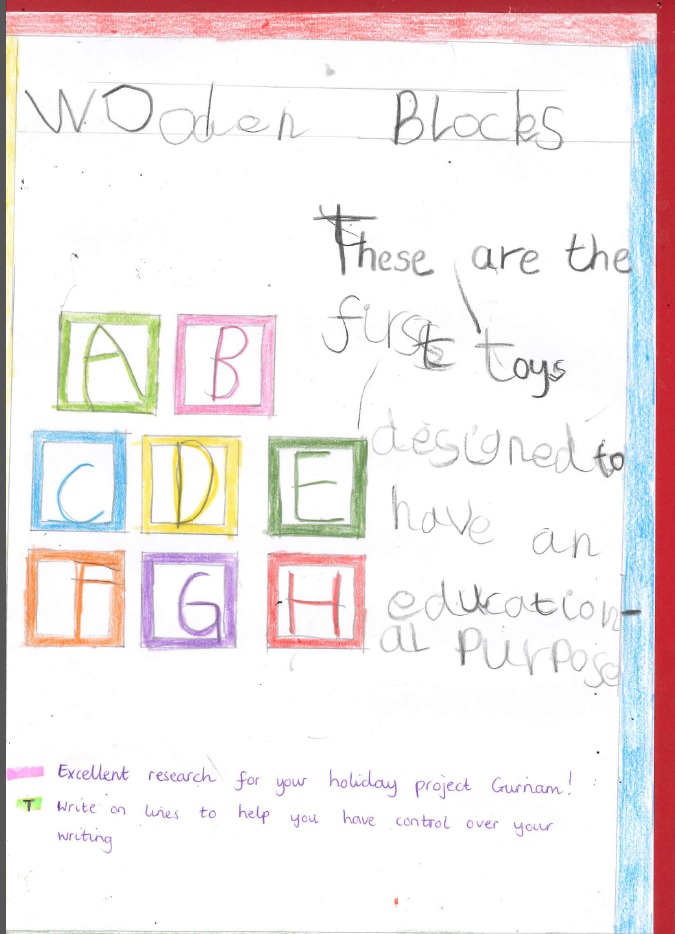 Wooden Blocks
These are the
first toys
designed to
have an
education-
al purpose
A B
C D E
F G H
Excellent research for your holiday project Gurnam!
T Write on lines to help you have control over your
writing